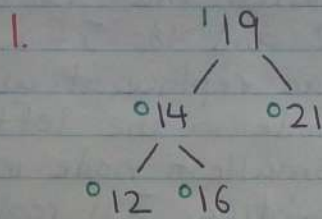 1. 1 19
0 14 0 21
0 12 0 16